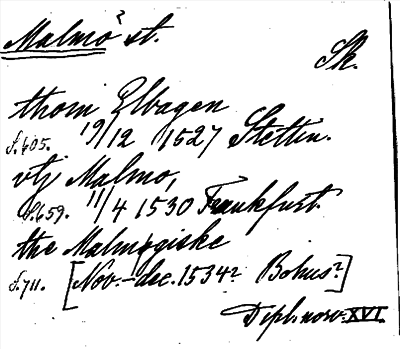 Malmö? st.
Sk.
thom Elbagen
s. 605. 19/12 1527 Stettin.
vtj Malmo,
s. 659. 11/4 1530 Frankfurt.
the Malmøgiske
s. 711. [Nov.–dec. 1534? Bohus?]
Dipl. norv. XVI.